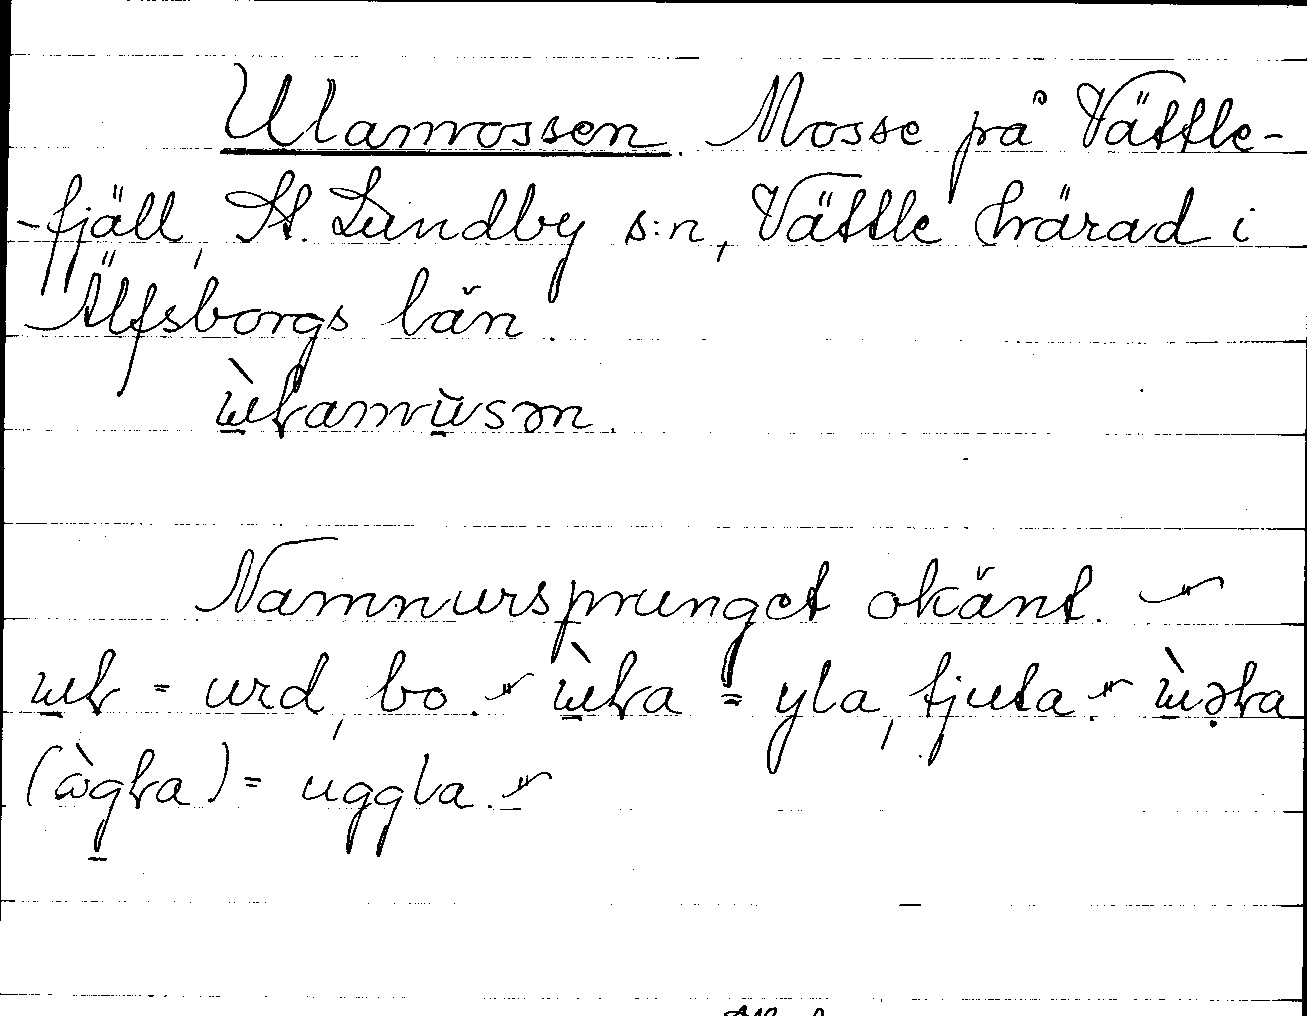 Ulamossen. Mosse på Vättle-
-fjäll, St. Lundby s:n, Vättle härad i
Älfsborgs län.
ɯ̀ɽamɯ̀sən.
Namnursprunget okänt. -"-
ɯɽ = urd, bo. -"- ɯ̀ɽa = yla, tjuta. -"- ɯ̀əɽa
(ὼgɽa) = uggla. -"-